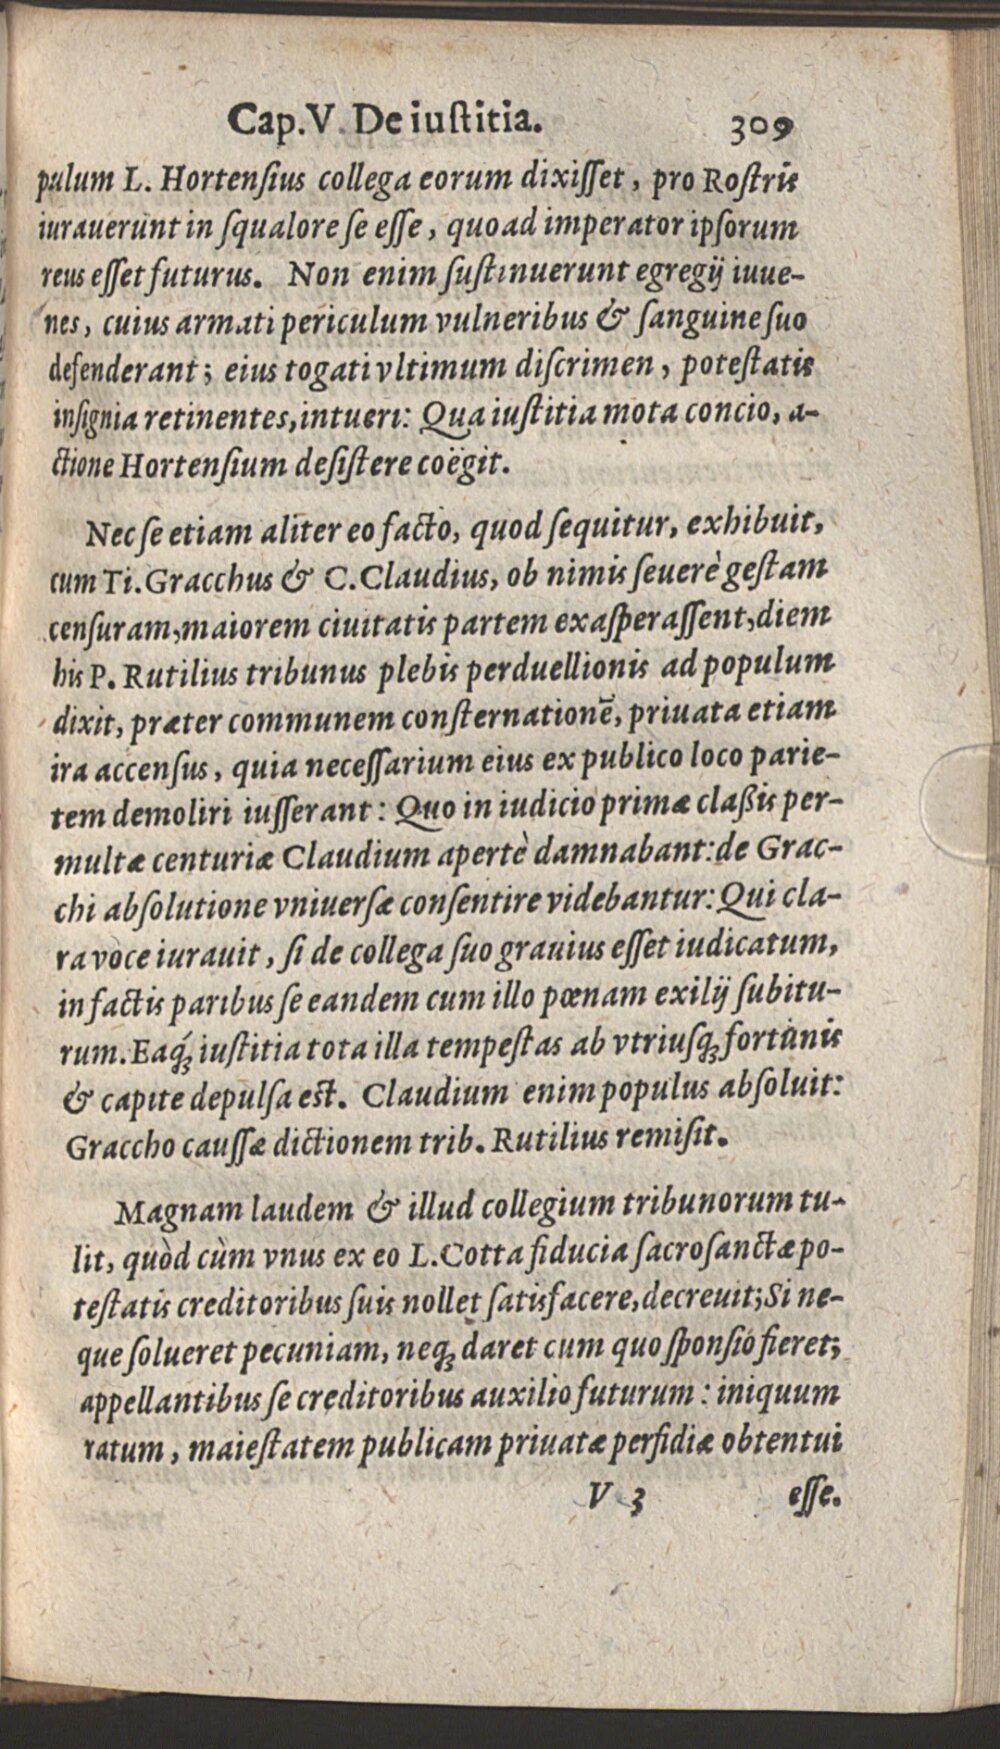 Cap. V. De iuſtitia. 309
pulum L. Hortenſius collega eorum dixiſſet, pro Roſtris
iurauerunt in ſqualore ſe eſſe, quoad imperator ipſorum
reus eſſet futurus. Non enim ſuſtinuerunt egregij iuue-
nes, cuius armati periculum vulneribus & ſanguine ſuo
defenderant; eius togati vltimum diſcrimen, poteſtatis
inſignia retinentes, intueri: Qua iuſtitia mota concio, a-
ctione Hortenſium deſiſtere coëgit.
Nec ſe etiam aliter eo facto, quod ſequitur, exhibuit,
cum Ti. Gracchus & C. Claudius, ob nimis ſeuerè geſtam
cenſuram, maiorem ciuitatis partem exaſperaſſent, diem
his P. Rutilius tribunus plebis perduellionis ad populum
dixit, præter communem conſternationē, priuata etiam
ira accenſus, quia neceſſarium eius ex publico loco parie-
tem demoliri iuſſerant: Quo in iudicio primæ claßis per-
multæ centuriæ Claudium apertè damnabant: de Grac-
chi abſolutione vniuerſæ conſentire videbantur: Qui cla-
ra voce iurauit, ſi de collega ſuo grauius eſſet iudicatum,
in factis paribus ſe eandem cum illo pœnam exilij ſubitu-
rum. Eaq́ꝫ iuſtitia tota illa tempeſtas ab vtriuſqꝫ fortunis
& capite depulſa eſt. Claudium enim populus abſoluit:
Graccho cauſſæ dictionem trib. Rutilius remiſit.
Magnam laudem & illud collegium tribunorum tu-
lit, quòd cùm vnus ex eo L. Cotta fiducia ſacroſanctæ po-
teſtatis creditoribus ſuis nollet ſatisfacere, decreuit; Si ne-
que ſolueret pecuniam, neqꝫ daret cum quo ſponſio fieret;
appellantibus ſe creditoribus auxilio futurum: iniquum
ratum, maieſtatem publicam priuatæ perfidiæ obtentui
V 3 eſſe.